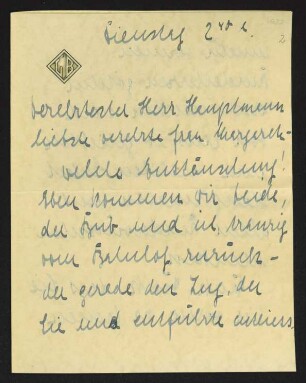 Dienstag 2 Uhr.
LB
verehrtester Herr Hauptmann
liebste verehrte Frau Margarete
welche Enttäuschung!
Eben kommen wir beide,
der Bub und ich, traurig
vom Bahnhof zurück –
der gerade den Zug, der
Sie uns entführte